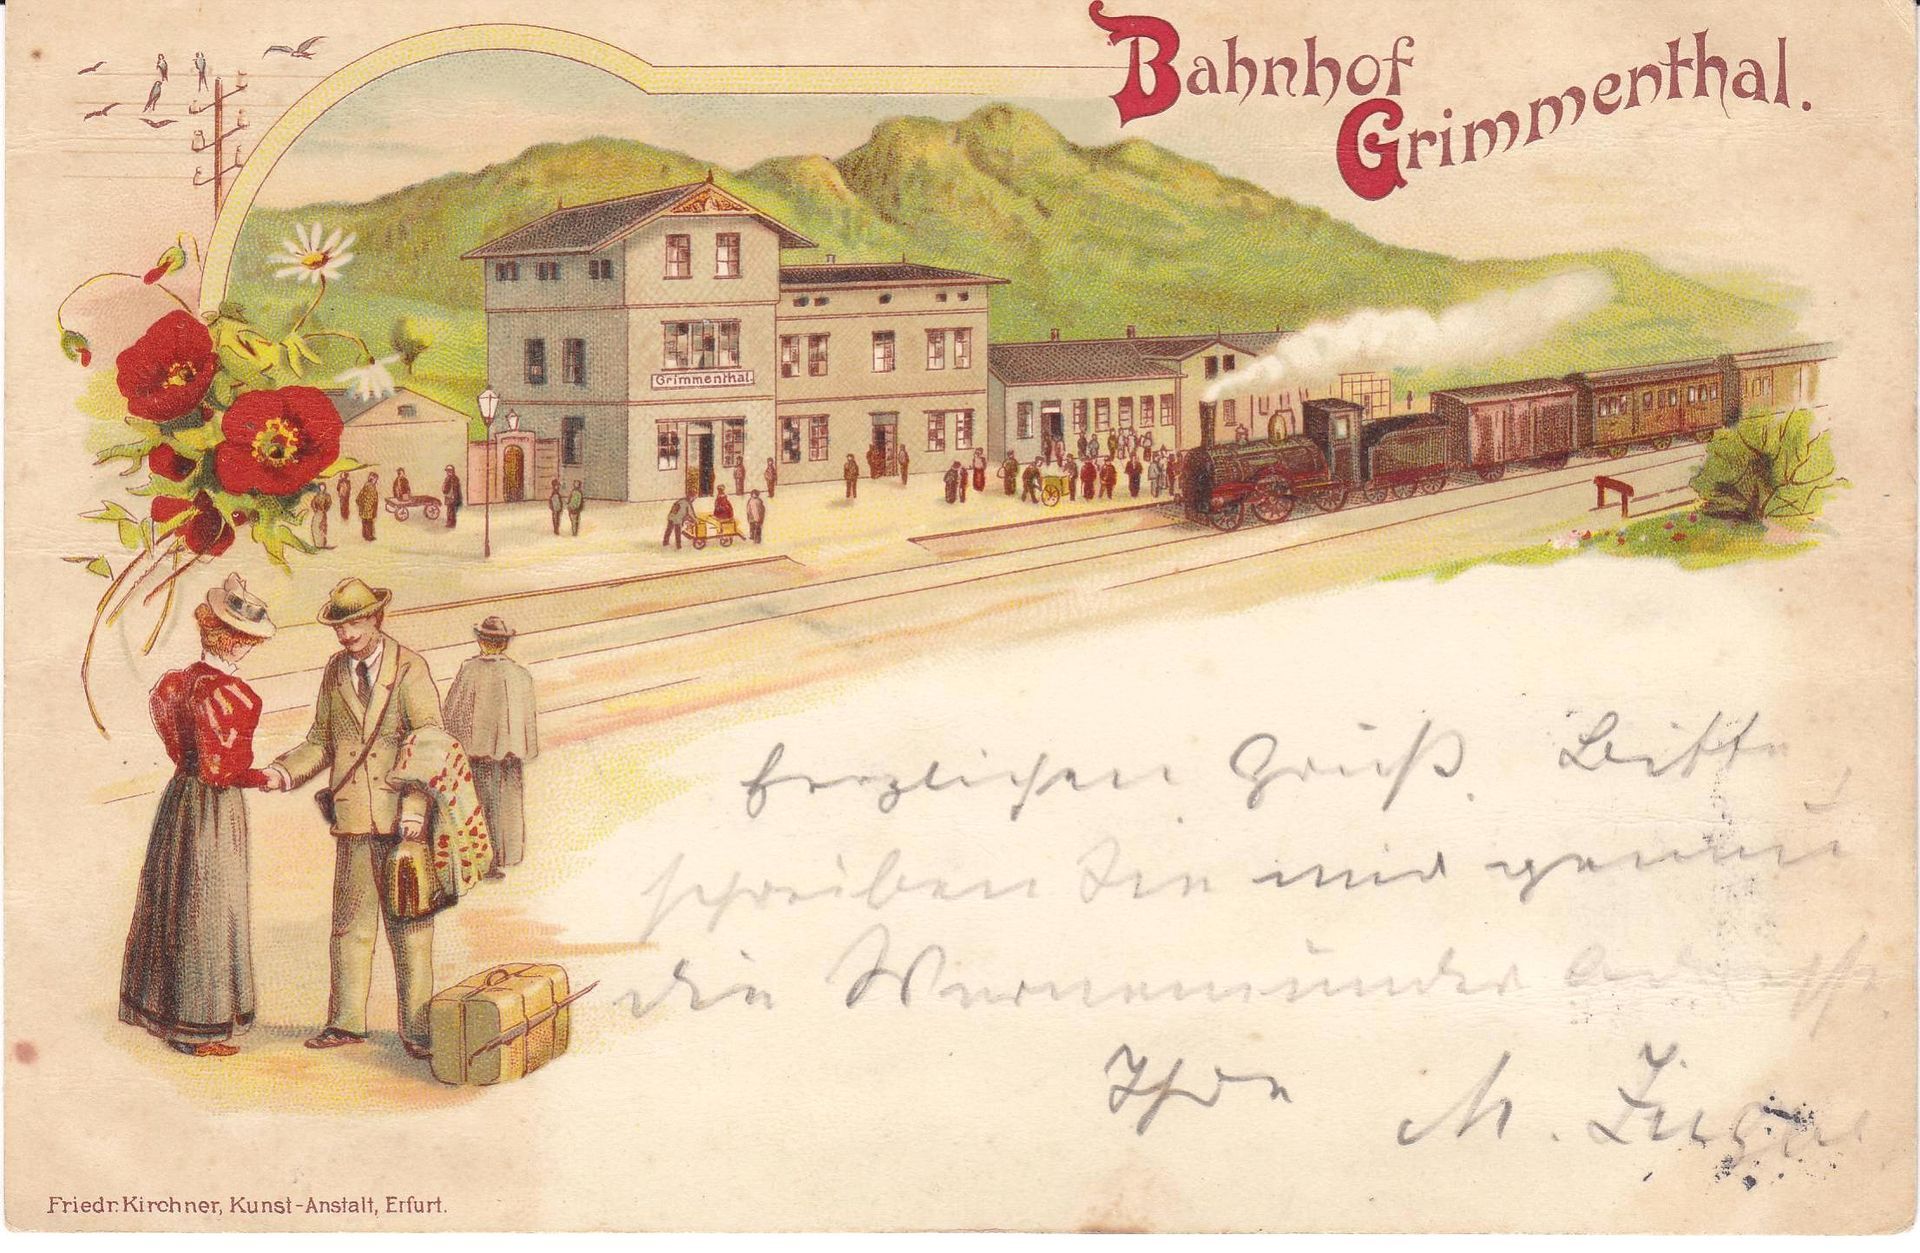 Bahnhof
Grimmenthal.
Grimmenthal.
Herzlichen Gruß. Bitte
schreiben Sie mir genau
die Warnemünder Adresse
Ihre M.
Friedr. Kirchner, Kunst-Anstalt, Erfurt.